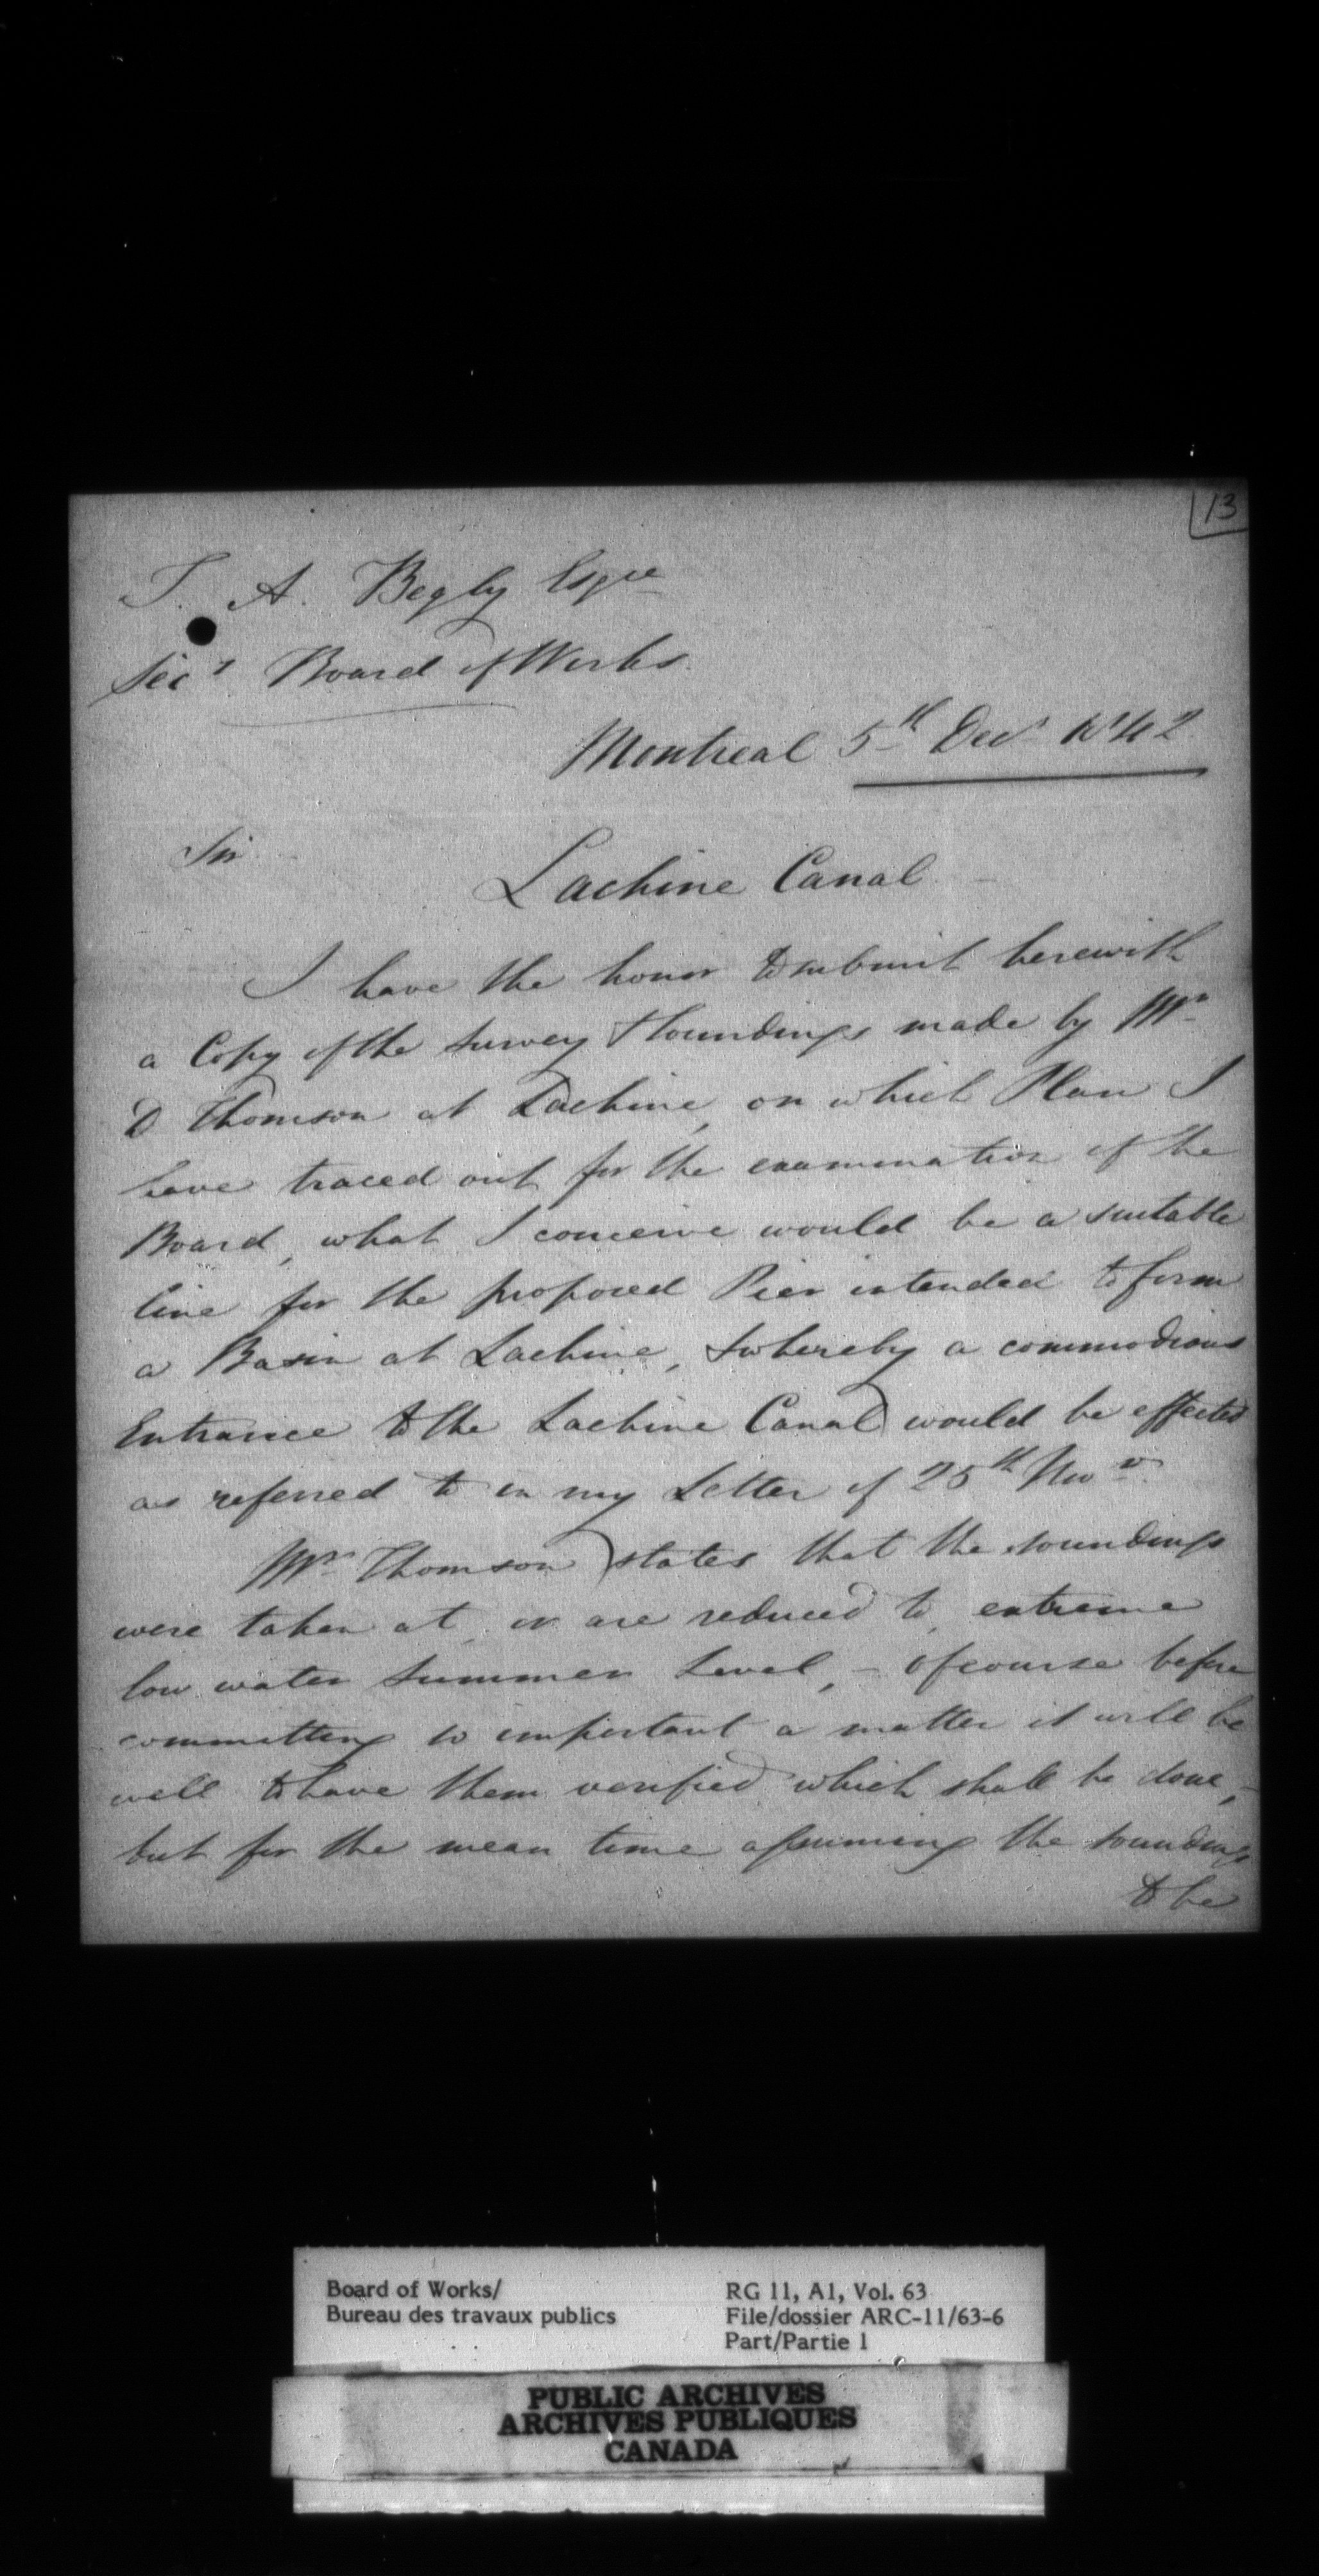 13
T. A. Begly Esqre
Secy Board of Works.
Montreal 5th Decr 1842
Sir
Lachine Canal
I have the honor to submit herewith
a Copy of the Survey & Soundings made by Mr
D Thomson at Lachine, on which Plan I
have traced out for the examination of the
Board, what I conceive would be a suitable
line for the proposed Pier intended to form
a Basin at Lachine, & whereby a commodious
Entrance to the Lachine Canal would be effected
as referred to in my Letter of 25th Novr
Mr Thomson states that the soundings
were taken at, or are reduced to, extreme
low water Summer Level, – of course before
committing so important a matter it will be
well to have them verified which shall be done, –
but for the mean time assuming the soundings
to be
Board of Works/
Bureau des travaux publics
RG 11, A1, Vol. 63
File/dossier ARC-11/63-6
Part/Partie 1
PUBLIC ARCHIVES
ARCHIVES PUBLIQUES
CANADA